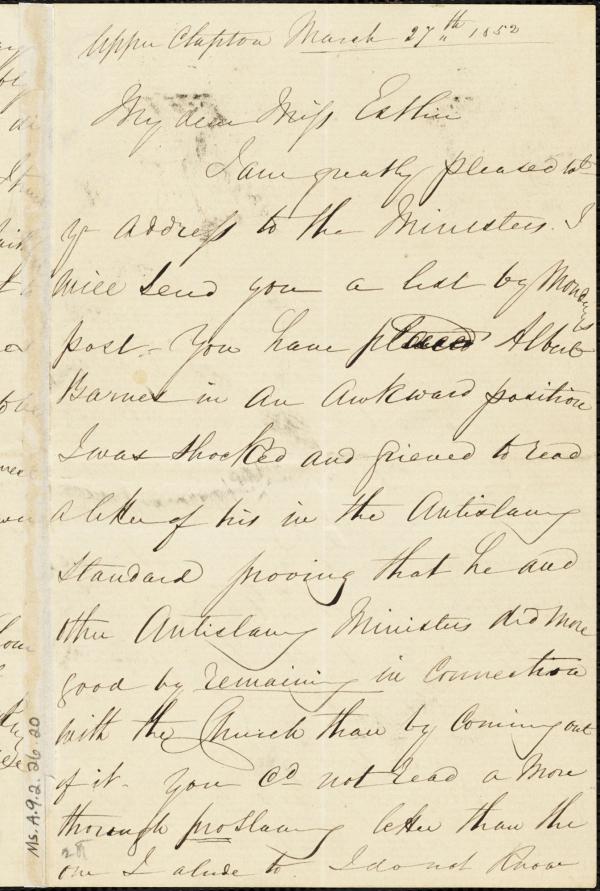 Upper Clapton March 27th 1852
My dear Miss Estlin
I am greatly pleased wt
yr Address to the Ministers. I
will send you a list by Mondays
post - You have placed Albert
Barnes in an awkward position
I was shocked and grieved to read
a letter of his in the Antislavery
Standard proving that he and
other Antislavery Ministers did more
good by remaining in connection
with the Church than by coming out
of it - You cd not read a more
thorough proslavery letter than the
one I alude to I do not know
Ms. A.9.2.26.20